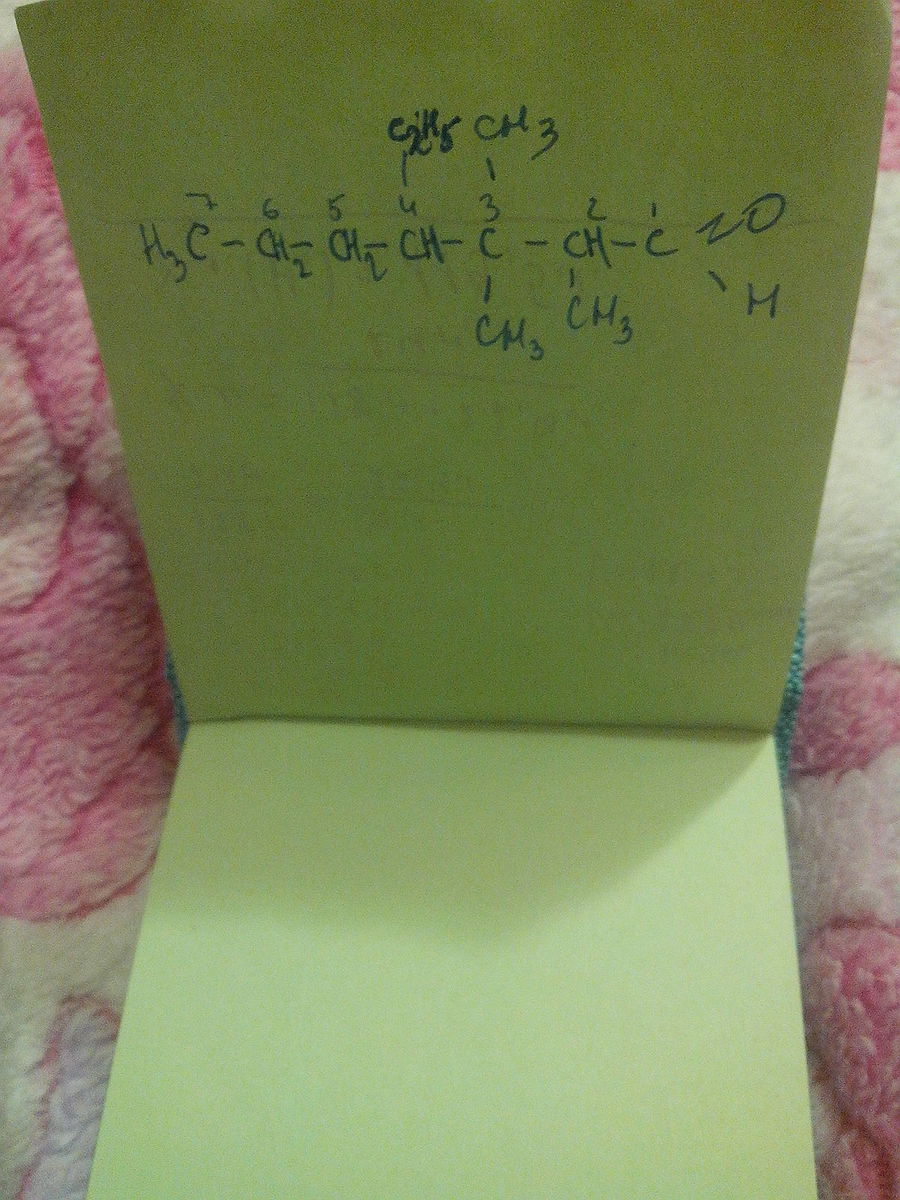 C₂H₅ CH₃
7 6 5 4 3 2 1
H₃C - CH₂ - CH₂ - CH - C - CH - C = O
CH₃ CH₃ \ H